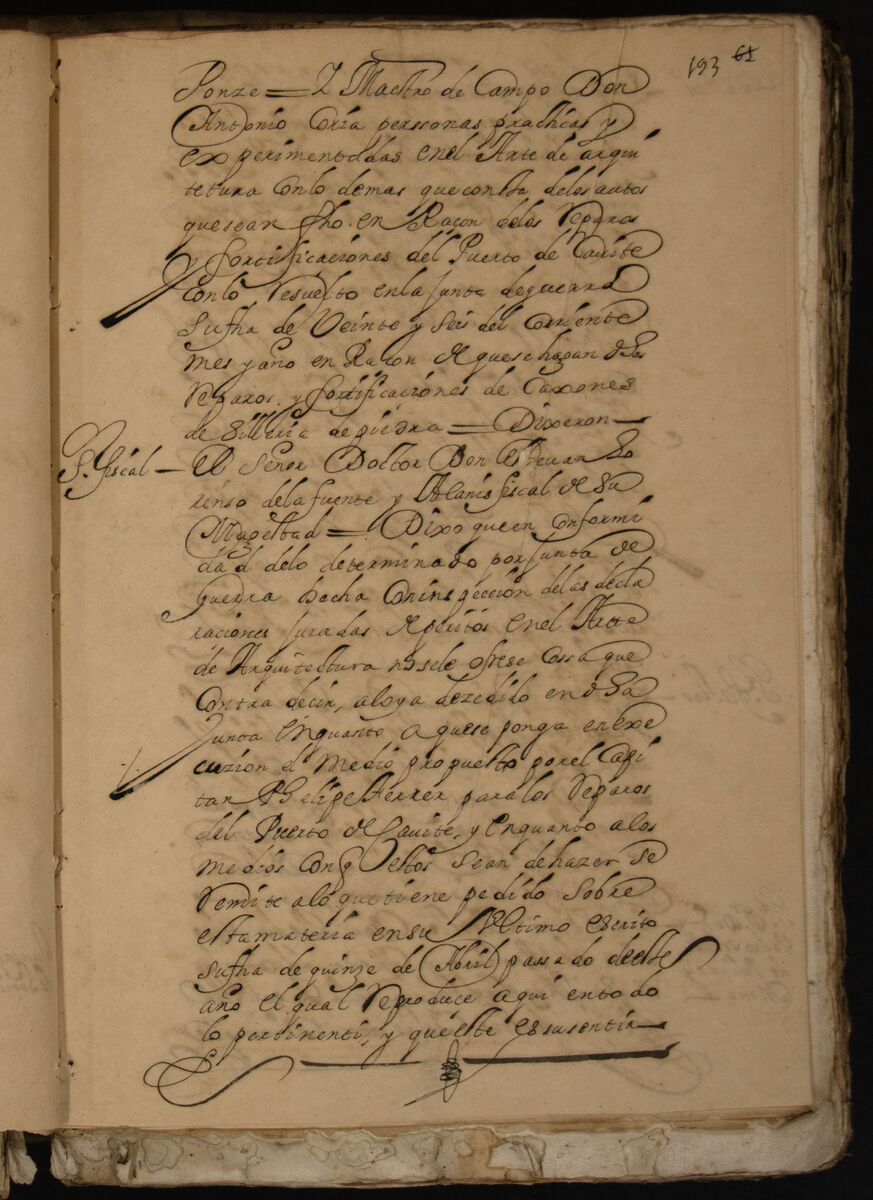 193 61
Ponze = I Maestro de Campo Don
Antonio Coria perssonas practicas y
experimentadas en el Arte de arqui
tetura con lo demas que consta de los autos
que sean fho. en Raçon de los Reparos
y fortificaciones del Puerto de Cavite
con lo Resuelto en la junta de guerra
su fha de Veinte y seis del corriente
mes y año en Raçon de que se hagan dhos
Reparos y fortificaciones de Caxones
de Silleria de piedra = Dixeron
Sr. fiscal — El Señor Doctor Don Estevan Lo
renso de la fuente y Alanis fiscal de Su
Magestad = Dixo que en Conformi
dad de lo determinado por junta de
guerra hecha con inspeccion de las decla
raciones juradas de peritos en el Arte
de Arquitectura no se le ofrese cossa que
contra decir, a lo ya dezedido en dha
Junta en quanto a que se ponga en exe
cuzion el medio propuesto por el Capi
tan Phelipe Ferrer para los Reparos
del Puerto de Cavite, y en quanto a los
medios con q estos sean de hazer se
Remite a lo que tiene pedido sobre
esta materia en su Ultimo escrito
su fha de quinze de Abril passado deeste
año el qual Reproduce aqui en todo
lo pertinenti, y que este es su sentir